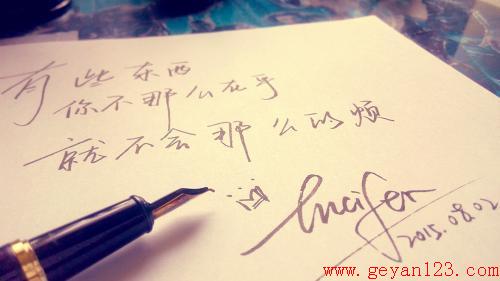 有些东西
你不那么在乎
就不会那么的烦
lucifer
2015.08.02
www.geyan123.com